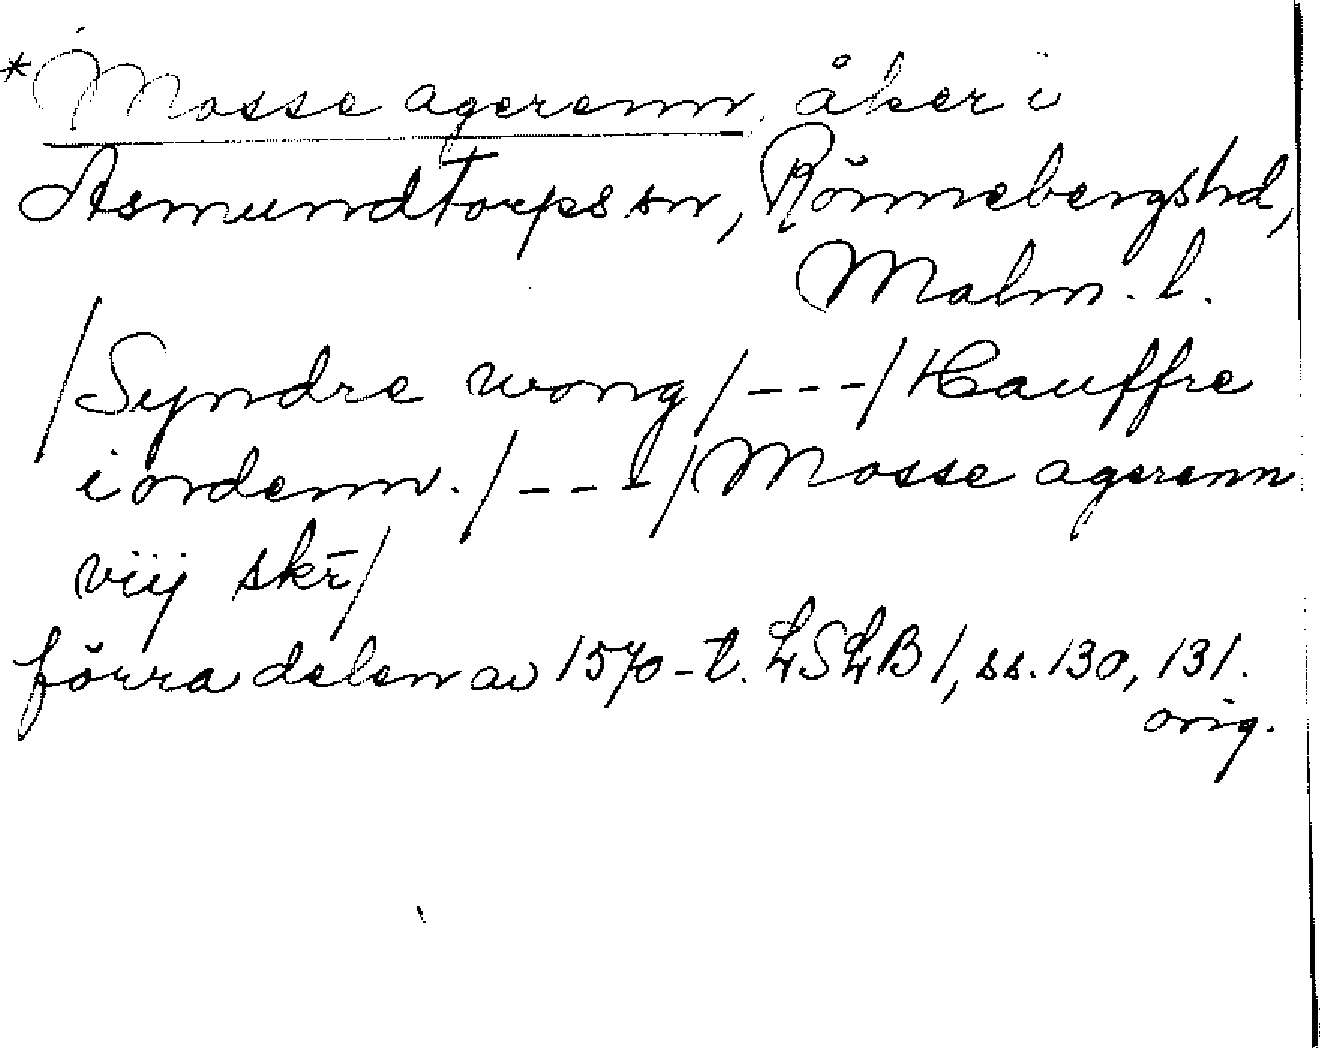 *Mosse agerenn, åker i
Asmundtorps sn, Rönnebergs hd,
Malm. l.
/Syndre wong/---/Hauffre
iordenn./---/Mosse agerenn
viij skr̄/
förra delen av 1570-t. LSLB 1, ss. 130, 131.
orig.